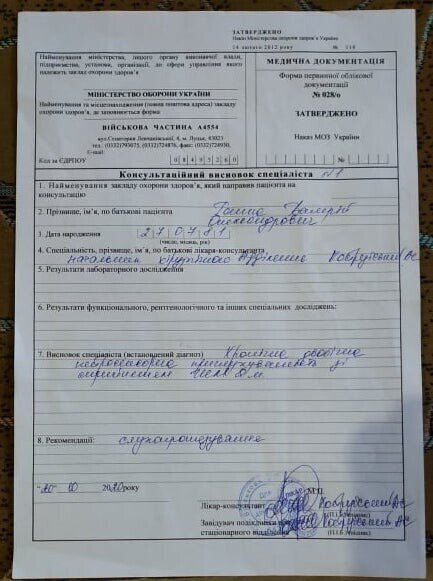 ЗАТВЕРДЖЕНО
Наказ Міністерства охорони здоров'я України
14 лютого 2012 року № 110
Найменування міністерства, іншого органу виконавчої влади,
підприємства, установи, організації, до сфери управління якого
належить заклад охорони здоров'я
МІНІСТЕРСТВО ОБОРОНИ УКРАЇНИ
Найменування та місцезнаходження (повна поштова адреса) закладу
охорони здоров'я, де заповнюється форма
ВІЙСЬКОВА ЧАСТИНА А4554
43023
E-mail:
Код за ЄДРПОУ 08495260
МЕДИЧНА ДОКУМЕНТАЦІЯ
Форма первинної облікової
документації
№ 028/о
ЗАТВЕРДЖЕНО
Наказ МОЗ України
Консультаційний висновок спеціаліста №1
1. Найменування закладу охорони здоров'я, який направив пацієнта на
консультацію
2. Прізвище, ім'я, по батькові пацієнта Валерій
Олександрович
3. Дата народження 270781
(число, місяць, рік)
4. Спеціальність, прізвище, ім'я, по батькові лікаря-консультанта
начальник відділення
5. Результати лабораторного дослідження
6. Результати функціонального, рентгенологічного та інших спеціальних досліджень:
7. Висновок спеціаліста (встановлений діагноз) Хронічна двобічна
нейросенсорна приглухуватість зі
сприйняттям
8. Рекомендації: слухопротезування
2020 року
М.П.
Лікар-консультант
(П.І.Б., підпис)
Завідувач поліклініки
стаціонарного відділення (П.І.Б., підпис)